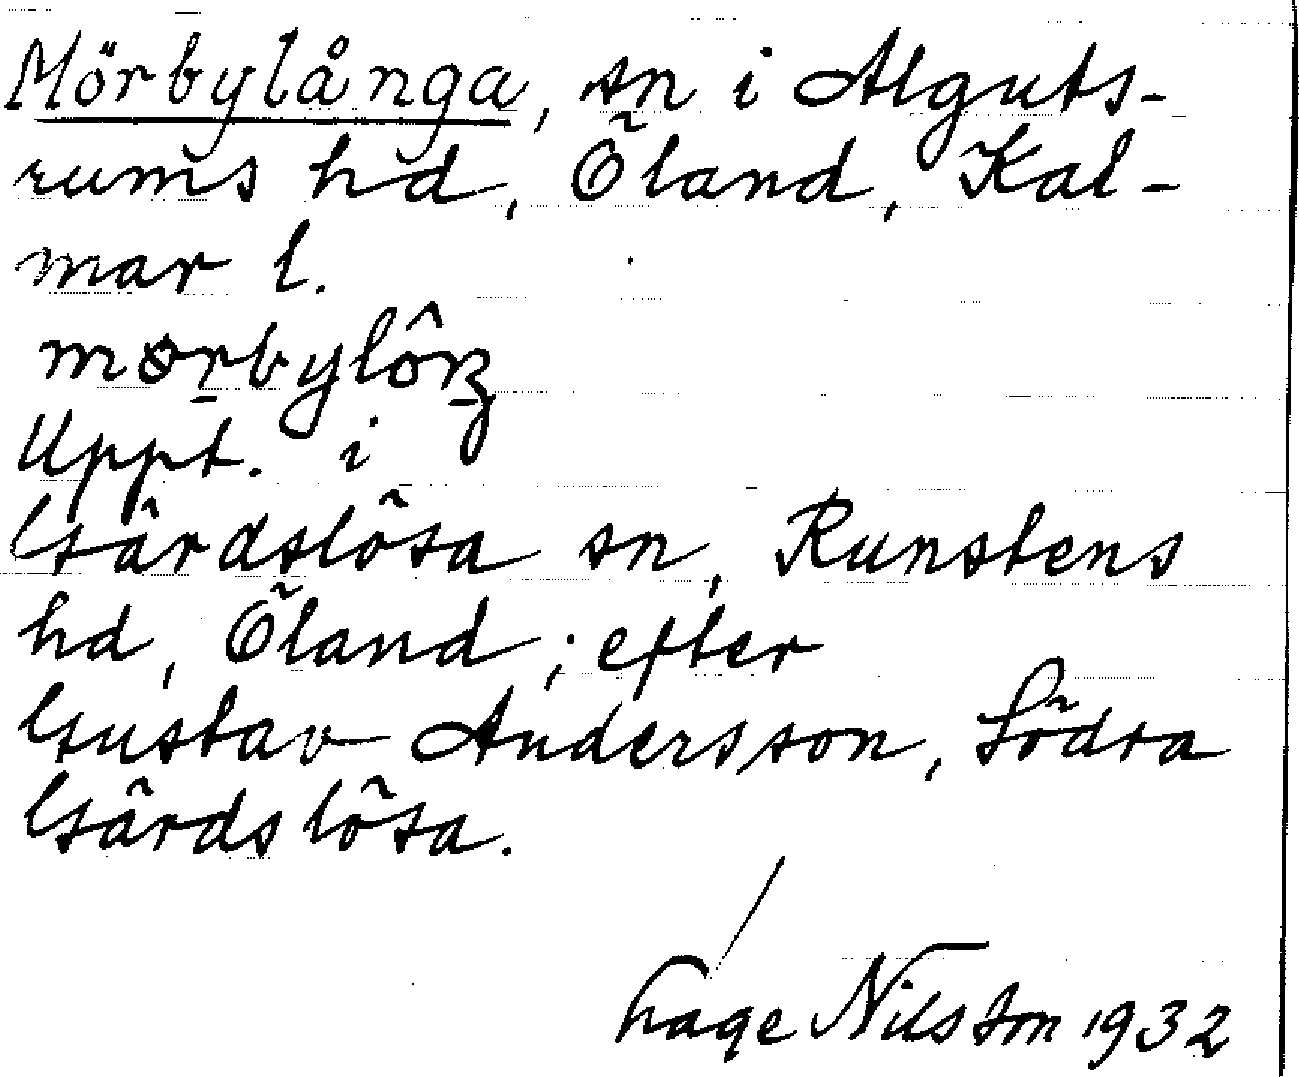 Mörbylånga, sn i Alguts-
rums hd, Öland, Kal-
mar l.
Uppt. i
Gärdslösa sn, Runstens
hd, Öland; efter
Gustav Andersson, Södra
Gärdslösa.
Hage Nilsson 1932